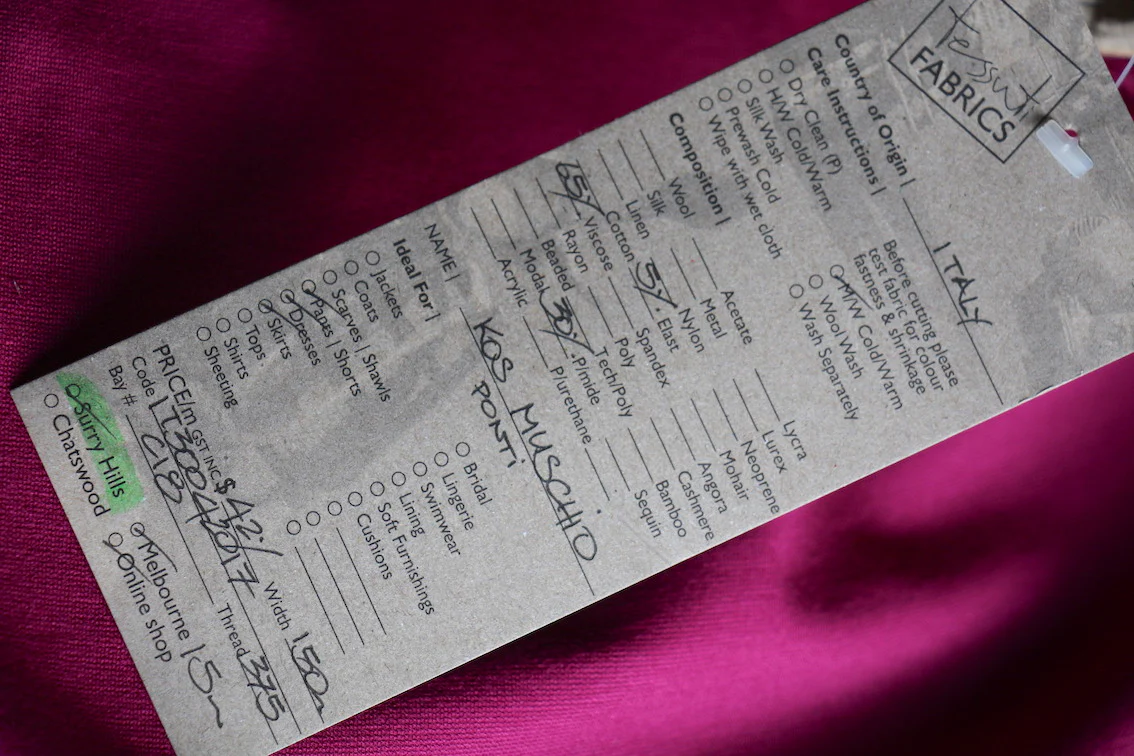 Tessuti
FABRICS
Country of Origin | ITALY
Care Instructions |
Before cutting please
test fabric for colour
fastness & shrinkage
Dry Clean (P)
H/W Cold/Warm
Silk Wash
Prewash Cold
Wipe with wet cloth
M/W Cold/Warm
Wool Wash
Wash Separately
Composition |
Wool
Silk
Linen
Cotton
65% Viscose
Rayon
Beaded
Modal
Acrylic
Acetate
Metal
Nylon
5% Elast
Spandex
Poly
Tech/Poly
30% P/mide
P/urethane
Lycra
Lurex
Neoprene
Mohair
Angora
Cashmere
Bamboo
Sequin
NAME | KOS MUSCHIO
PONTI
Ideal For |
Jackets
Coats
Scarves | Shawls
Pants | Shorts
Dresses
Skirts
Tops
Shirts
Sheeting
Bridal
Lingerie
Swimwear
Lining
Soft Furnishings
Cushions
PRICE/m GST INC. $42/ Width 150
Code | T30042017 Thread 375
Bay # C18
Surry Hills
Chatswood
Melbourne 15m
Online shop